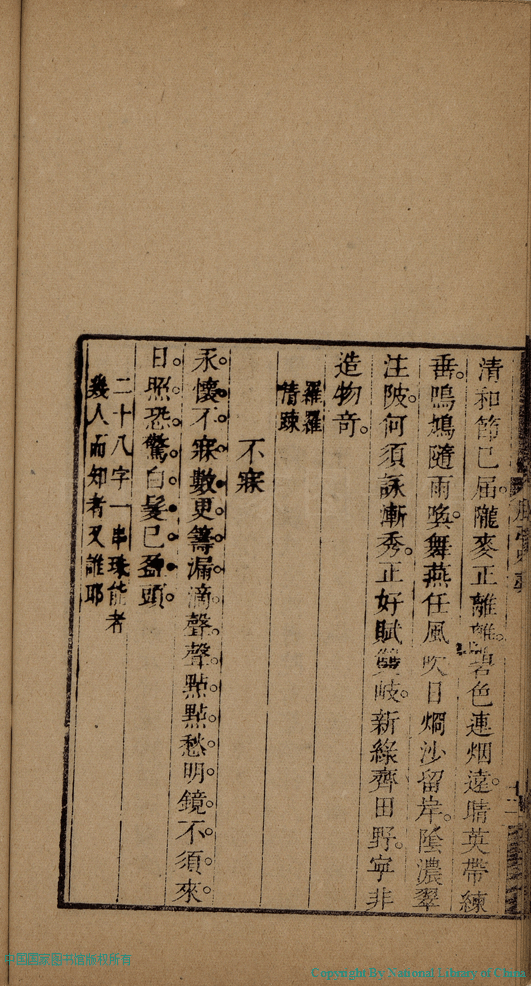 清和節已届。隴麥正離離。碧色連烟遠。晴英帶練
垂。鳴鳩隨雨喚。舞燕任風吹日烱沙留岸。陰濃翠
注陂。何須詠漸秀。正好賦雙岐。新綠齊田野。寧非
造物奇。
羅羅
情疎
不寐
永懷。不寐。數更籌。漏滴聲聲點點愁。明鏡不須來
日照。恐驚白髮已盈頭。
二十八字一串珠能者
幾人而知者又誰耶
中国国家图书馆版权所有
Copyright By National Library of China